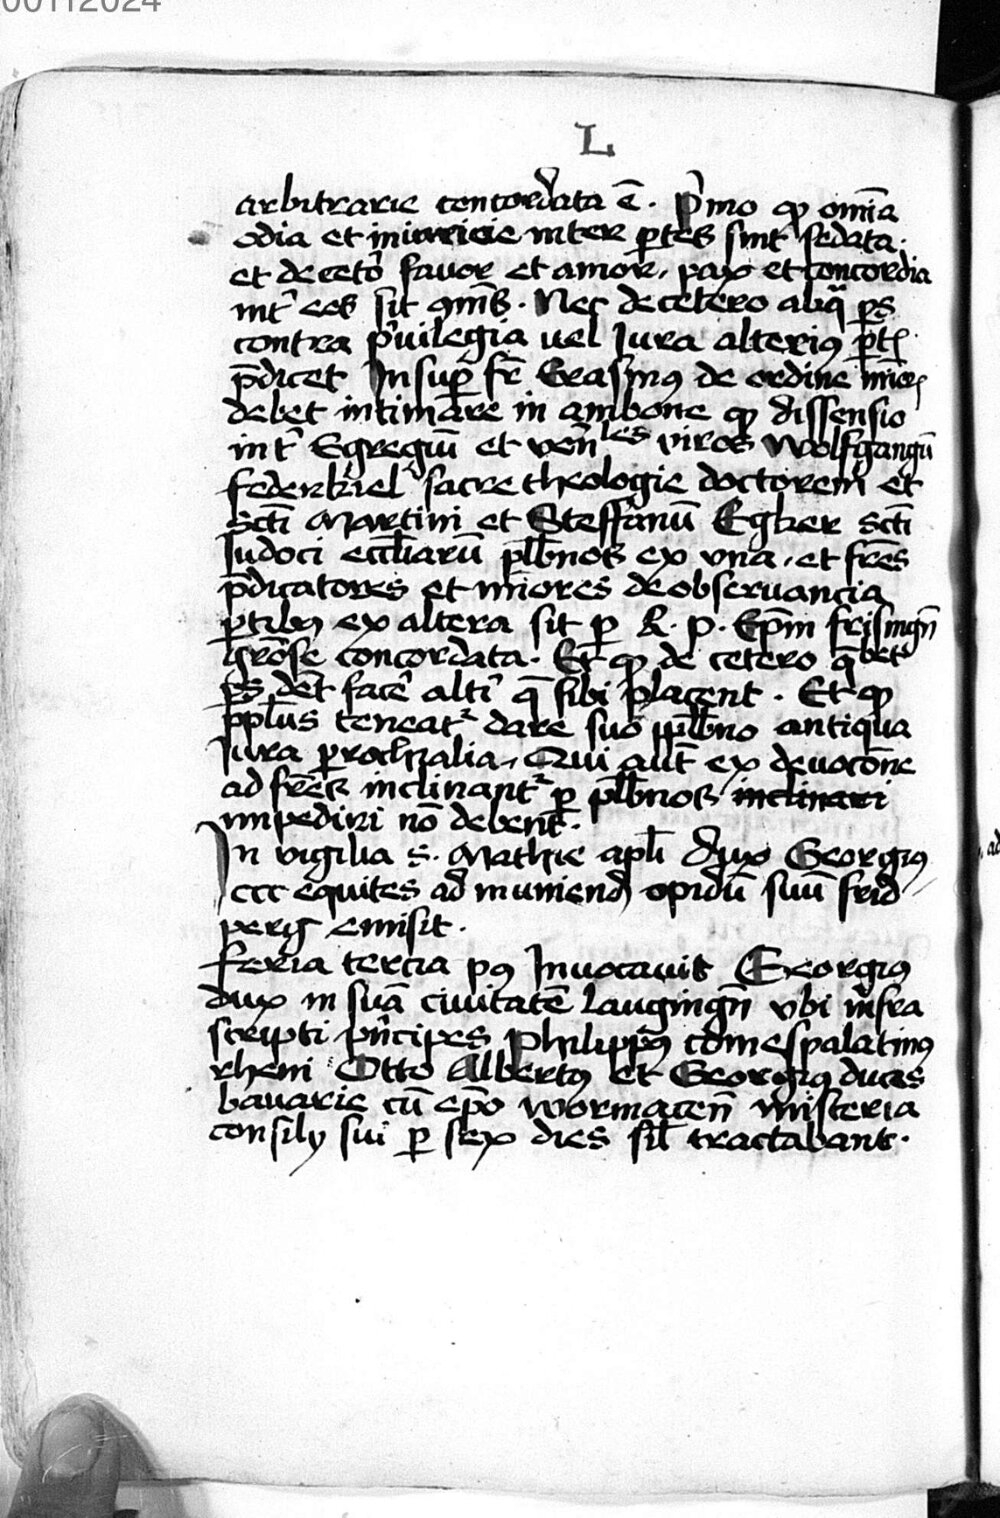 00112024
L
arbitrarie concordata ē. P̍mo qꝫ om̄ia
odia et iniuricie inter ꝑtes sint sedata.
et de ceto᷑ favor et amor, pax et concordia
int᷑ eos sit ꝯmīs. Nec de cetero aliq̄ ꝑs
contra p̍uilegia uel Jura alteriꝰ ꝑtꝭ
p̄dicet Insuꝑ fr̄ Erasmꝰ de ordine mīoꝝ
debet intimare in ambone qꝫ dissensio
int᷑ Egregiū et ven̄les viros Wolfgangū
federkiel sacre theologie doctorem et
Scti Martini et Steffanū Egker Scti
Judoci eccl̄iarū pl̄bnos ex vna, et fr̄es
p̄dicatores et mīores de obseruancia
ꝑtibꝰ ex altera sit ꝑ R. p. Ep̄m frisingn̄
gr̄ose concordata. Et qꝫ de cetero q̄libet
ꝑs det facē alti᷑ q̄ sibi placent. Et qꝫ
ppl̄us teneat᷑ dare suo pl̄bno antiqua
Jura ꝑrochialia, Qui aūt ex deuocōne
ad fr̄es inclinant᷑ ꝑ pl̄bnos inclinari
impediri nō debent.
In vigilia s. Mathie apl̄i dux Georgiꝰ
ccc equites ad muniend̄ opidū suū frid
perg emisit.
feria tercia pꝰ Inuocauit Georgiꝰ
dux in suā ciuitatē Laugingn̄ vbi infra
scripti pn̄cipes Philippꝰ comes palatinꝰ
rheni Otto Albertꝰ et Georgiꝰ duces
bavarie cū ep̄o wormacen̄ misteria
consilÿ sui ꝑ sex dies sil̄ tractabant.
ad